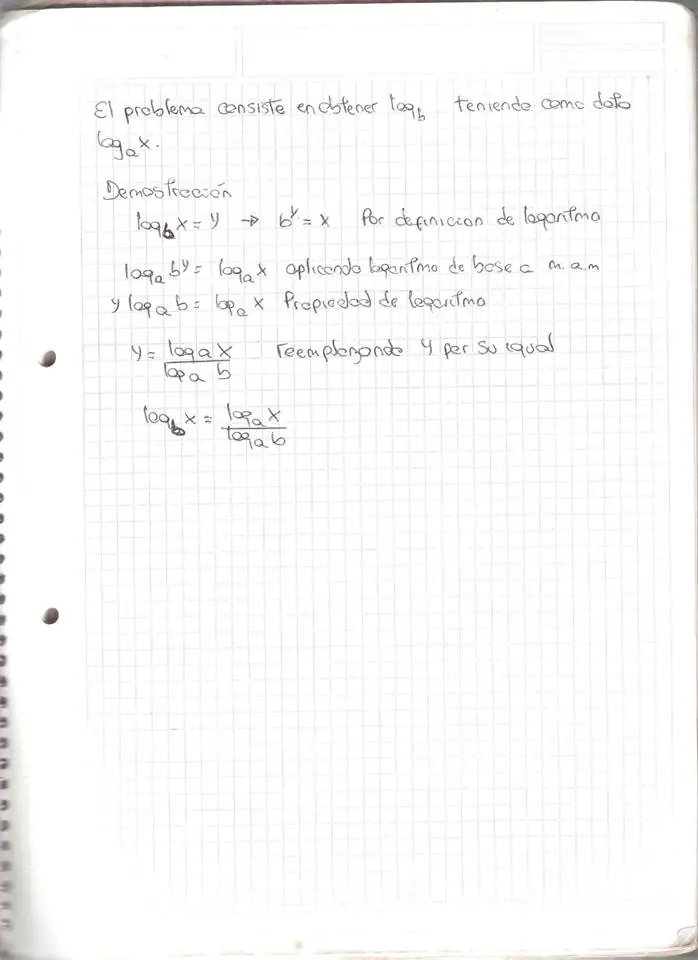 El problema consiste en obtener log_b teniendo como dato
log_a x.
Demostración
log_b x = y → b^y = x Por definicion de logaritmo
log_a b^y = log_a x aplicando logaritmo de base a m.a.m
y log_a b = log_a x Propiedad de logaritmo
y = log_a x / log_a b reemplazando y por su igual
log_b x = log_a x / log_a b